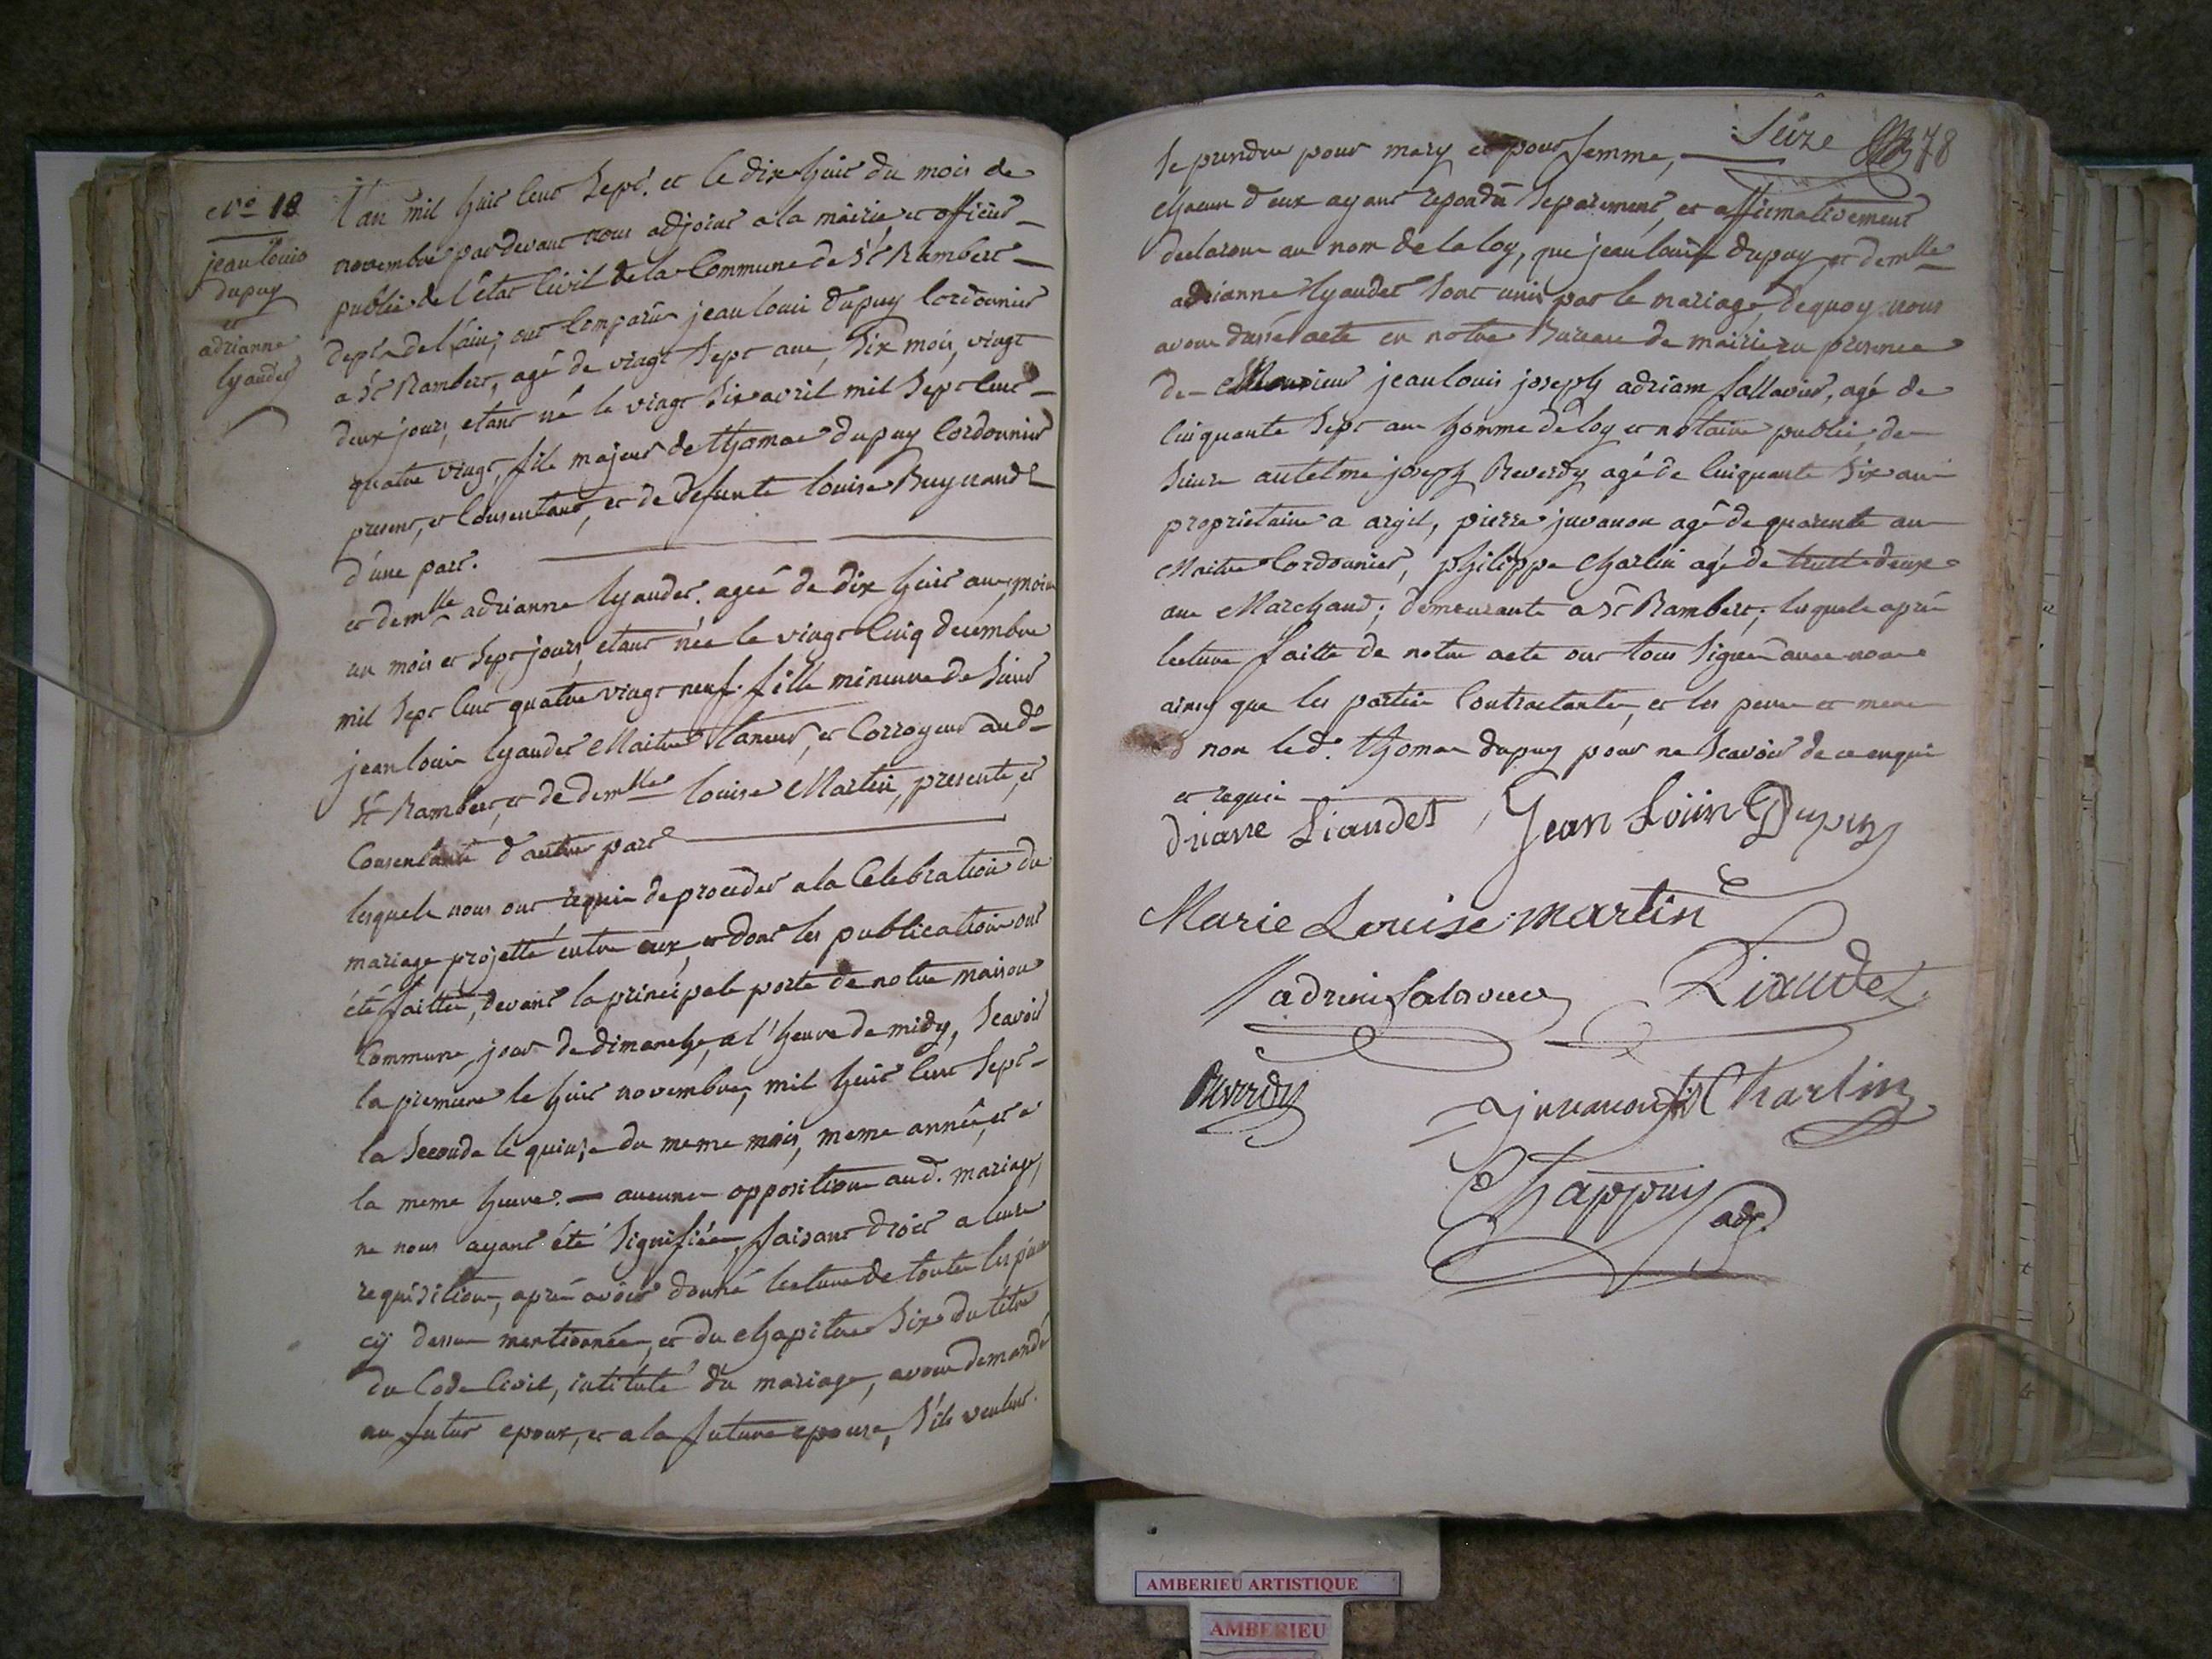 N.o 18
jean louis
dupuy
et
adrianne
lyaudet
L'an mil huit cent sept. et le dix huit du mois de
novembre pardevant nous adjoint a la mairie et officier
public de l'état civil de la commune de St Rambert
dept. de l'ain, ont comparus jean louis dupuy cordonnier
a St Rambert, agé de vingt sept ans, six mois, vingt
deux jours, etant né le vingt six avril mil sept cent
quatre vingt, fils majeur de thomas dupuy cordonnier
present, et consentant, et de defunte louise Reynaud
d'une part.
et demlle adrianne lyaudet. agée de dix huit ans, moins
un mois et sept jours, etant née le vingt cinq decembre
mil sept cent quatre vingt neuf. fille mineure de sieur
jean louis lyaudet Maitre taneur, et corroyeur aud.
St Rambert, et de demlle louise Martin, presents, et
consentants d'autre part
lesquels nous ont requis de proceder a la celebration du
mariage projetté entre eux, et dont les publications ont
été faittes, devant la principale porte de notre maison
commune, jour de dimanche, a l'heure de midy, scavoir
la premiere le huit novembre, mil huit cent sept
la seconde le quinze du meme mois, meme année, et a
la meme heure. — aucunes oppositions aud. mariage,
ne nous ayant été signifiées, faisant droit a leurs
requisitions, après avoir donné lecture de toutes les pieces
cy dessus mentionnées, et du chapitre six du titre
du Code Civil, intitulé du mariage, avons demandé
au futur epoux, et a la future epouse, s'ils veulent.
Seize 78
se prendre pour mary et pour femme,
chacun d'eux ayant repondu separement, et affirmativement
declarons au nom de la loy, que jean louis dupuy, et demlle
adrianne lyaudet sont unis par le mariage, dequoy nous
avons dressé acte en notre Bureau de mairie en presence
de Monsieur jean louis joseph adriam sallavier, agé de
cinquante sept ans homme de loy et notaire public, de
sieurs antelme joseph Reverdy agé de cinquante six ans
proprietaire a argil, pierre juvanon agé de quarente ans
Maitre Cordonnier, philippe Charlin agé de trente deux
ans Marchand; demeurants a St Rambert, lesquels après
lecture faitte de notre acte ont tous signé avec nous
ainsy que les parties contractantes, et les peres et meres
non led. thomas dupuy pour ne scavoir de ce enquis
et requis
driane Liaudet Jean Loüis Dupuy
Marie Louise martin
adrien Salavier Liaudet
Reverdy
juvanon fils Charlin
Chappuy adj.
AMBERIEU ARTISTIQUE
AMBERIEU